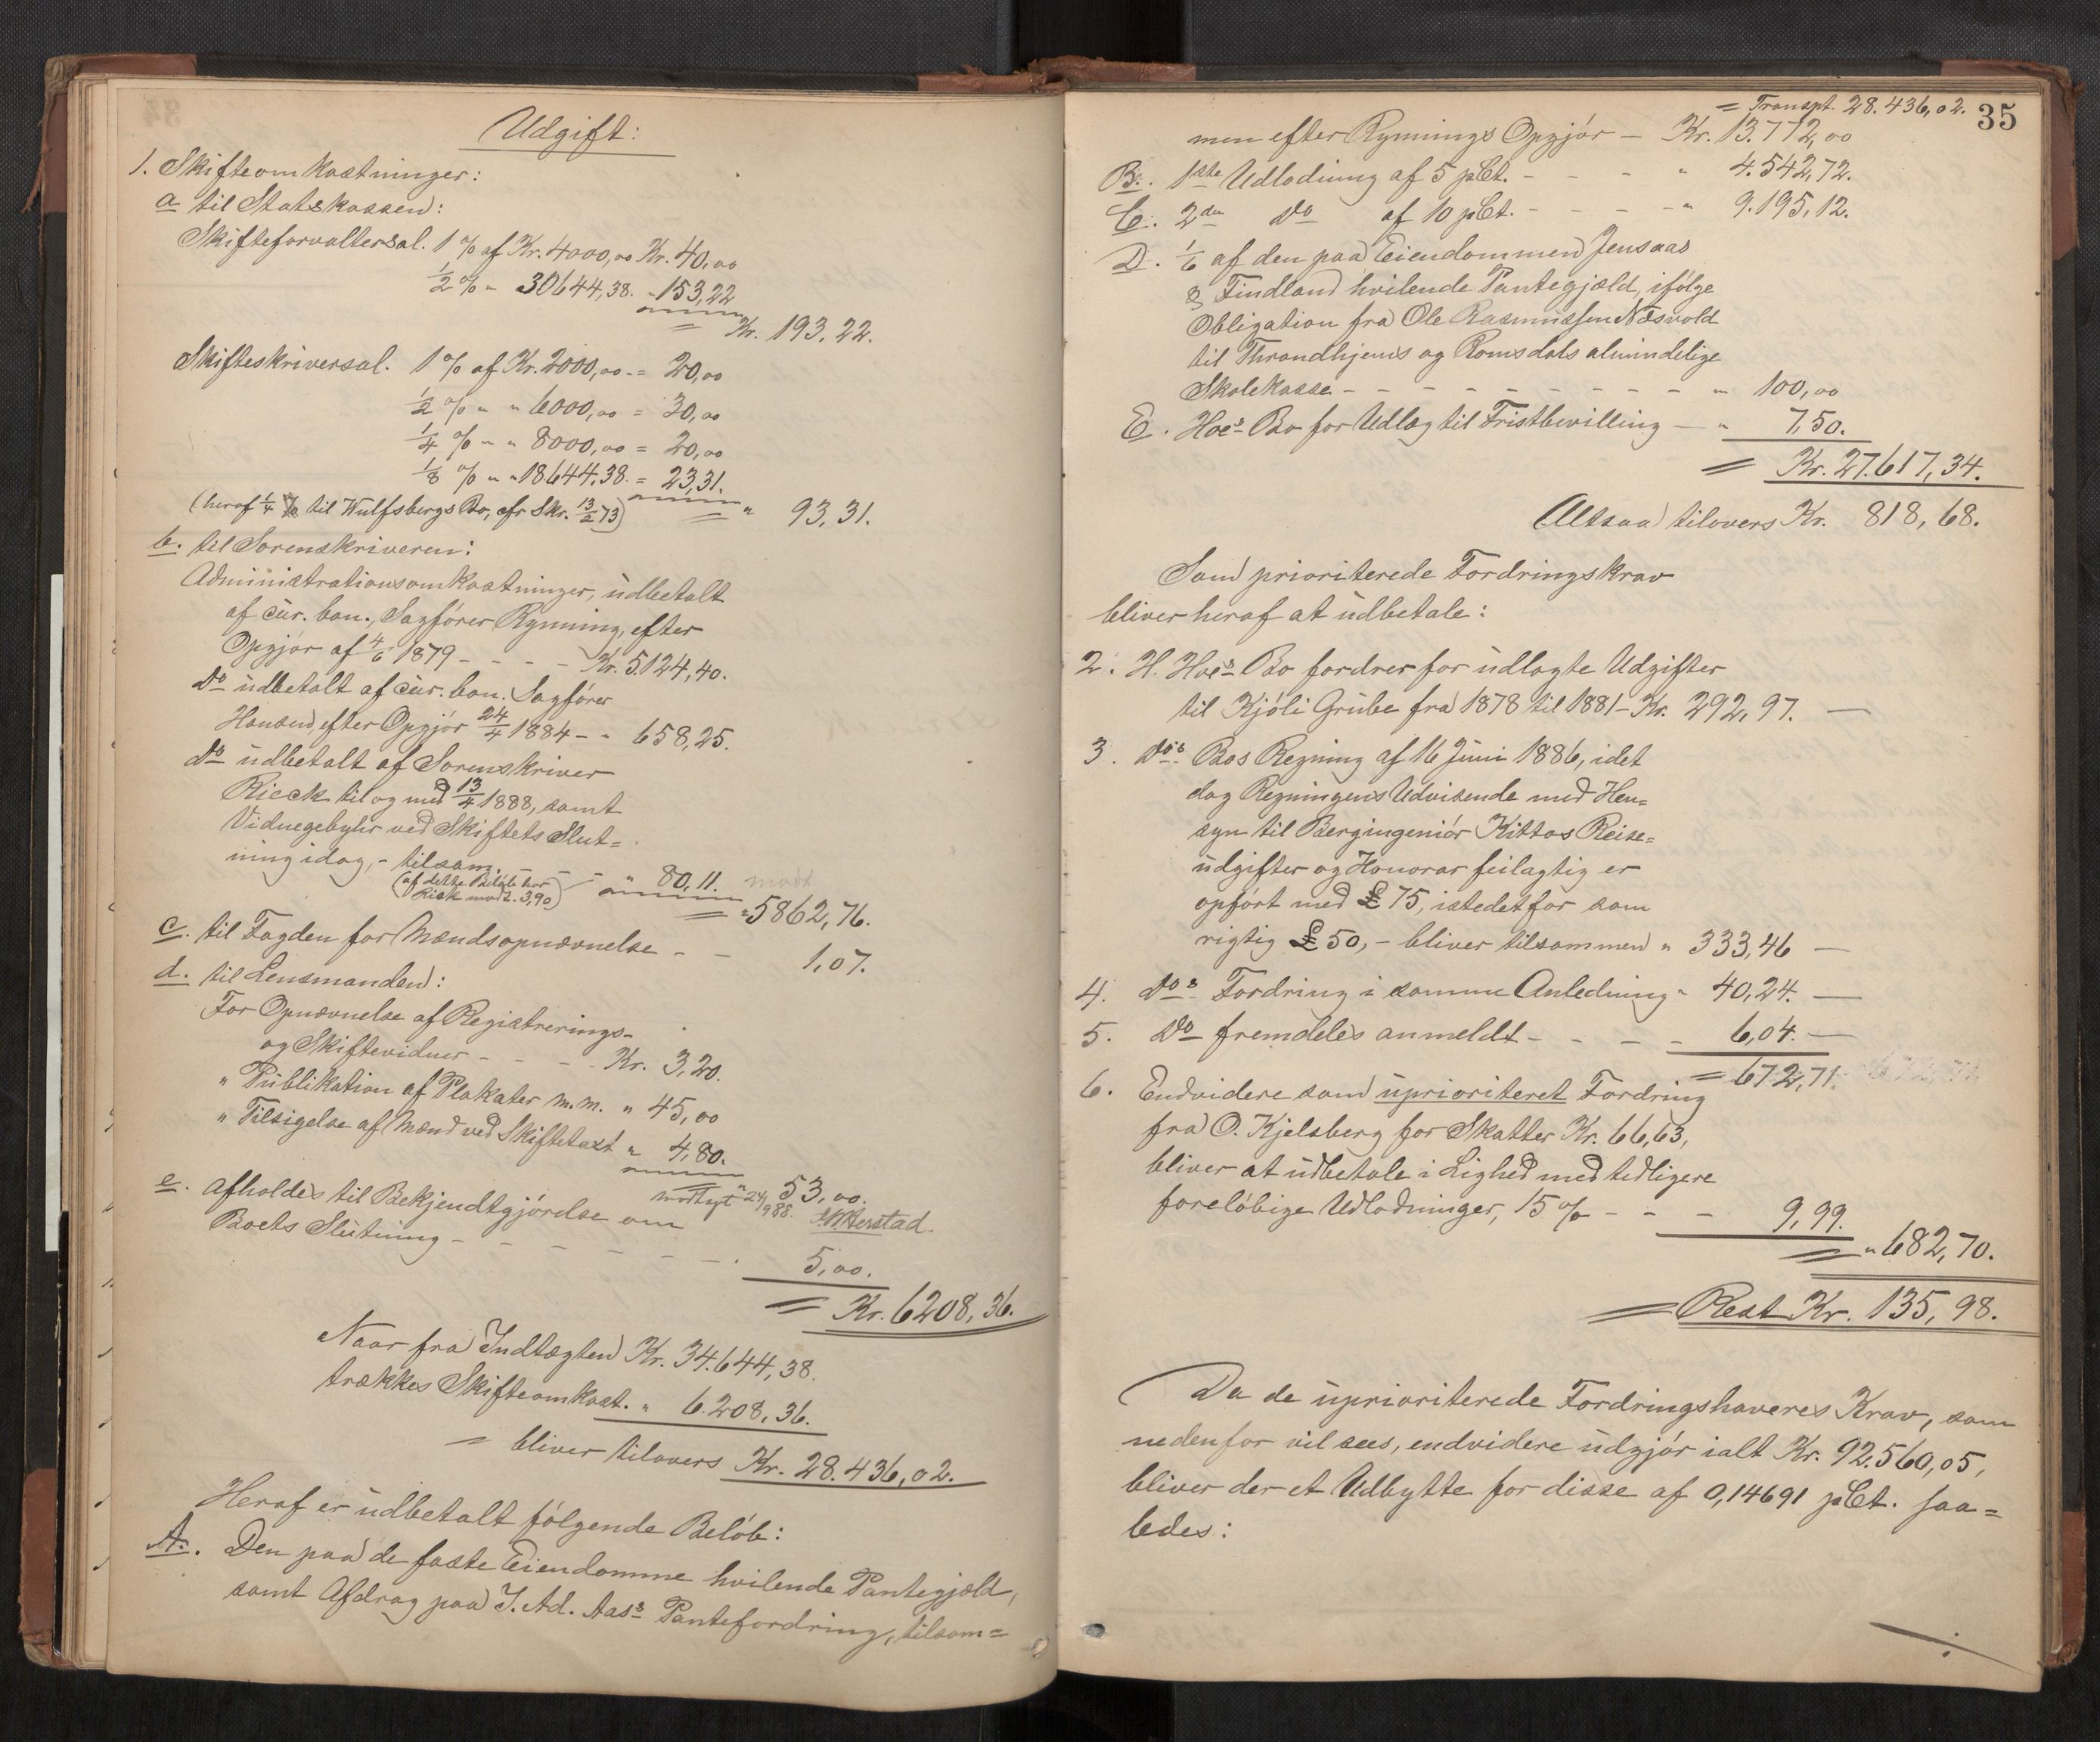 Udgift:
1. Skifteomkostninger:
a til Statskassen:
Skifteforvaltersal. 1 % af Kr. 4000,00 Kr. 40,00
1/2 % " 30644,38. " 153,22
= Kr. 193,22.
Skifteskriversal. 1 % af Kr. 2000,00 = 20,00
1/2 % " " 6000,00 = 30,00
1/4 % " " 8000,00 = 20,00
1/8 % " " 18644,38. = 23,31.
(heraf 1/4 % til Wulfsbergs Bo, cfr Skr. 13/2 73) = " 93,31.
b. til Sorenskriveren:
Administrationsomkostninger, udbetalt
af cur. bon., Sagfører Rynning, efter
Opgjør af 4/6 1879 - - - - Kr. 5124,40.
Do udbetalt af cur. bon. Sagfører
Hansen, efter Opgjør 24/4 1884 - " 658,25.
Do udbetalt af Sorenskriver
Rieck til og med 13/4 1888, samt
Vidnegebyhr ved Skiftets Slut=
ning idag, - tilsam. - - - " 80,11.
(af dette Beløb har
Rieck modt. 3,90)
= " 5862,76.
c. til Fogden for Mændsopnævnelse - - 1,07.
d. til Lensmanden:
For Opnævnelse af Registrerings-
og Skiftevidner - - - Kr. 3,20.
" Publikation af Plakater m.m. " 45,00
" Tilsigelse af Mænd ved Skiftetaxt " 4,80.
= " 53,00.
modtagt 24/9 88.
e. Afholdes til Bekjendtgjørelse om
Boets Slutning - - - - - - - 5,00.
= Kr. 6208,36.
Naar fra Indtægten Kr. 34.644,38.
trækkes Skifteomkost. " 6.208,36.
= bliver tilovers Kr. 28.436,02.
Heraf er udbetalt følgende Beløb:
A. Den paa de faste Eiendomme hvilende Pantegjæld,
samt Afdrag paa J. Ad. Aas's Pantefordring, tilsam=
35
= Transpt. 28.436,02.
men efter Rynnings Opgjør - Kr. 13.772,00
B. 1ste Udlodning af 5 pCt. - - - " 4.542,72.
C. 2den do af 10 pCt. - - - - " 9.195,12.
D. 1/6 af den paa Eiendommen Jensaas
& Findland hvilende Pantegjæld, ifølge
Obligation fra Ole Rasmussen Næsvold
til Throndhjems og Romsdals almindelige
Skolekasse - - - - - - - - - " 100,00
E. Hoe's Bo for Udlæg til Fristbevilling - " 7,50.
= Kr. 27.617,34.
Altsaa tilovers Kr. 818,68.
Som prioriterede Fordringskrav
bliver heraf at udbetale:
2. H. Hoe's Bo fordrer for udlagte Udgifter
til Kjøli Grube fra 1878 til 1881 - Kr. 292,97. -
3. Do's Bos Regning af 16 Juni 1886, idet
dog Regningens Udvisende med Hen=
syn til Bergingeniør Kittos Reise=
udgifter og Honorar feilagtig er
opført med £ 75, istedetfor som
rigtig £ 50, - bliver tilsammen " 333,46 -
4. Do's Fordring i samme Anledning " 40,24. -
5. Do fremdeles anmeldt - - - - 6,04. -
= 672,71.
6. Endvidere som uprioriteret Fordring
fra O. Kjelsberg for Skatter Kr. 66,63,
bliver at udbetale i Lighed med tidligere
foreløbige Udlodninger, 15 % - - - 9,99.
= " 682,70.
= Rest Kr. 135,98.
Da de uprioriterede Fordringshaveres Krav, som
nedenfor vil sees, endvidere udgjør ialt Kr. 92.560,05,
bliver der et Udbytte for disse af 0,14691 pCt. saa=
ledes: